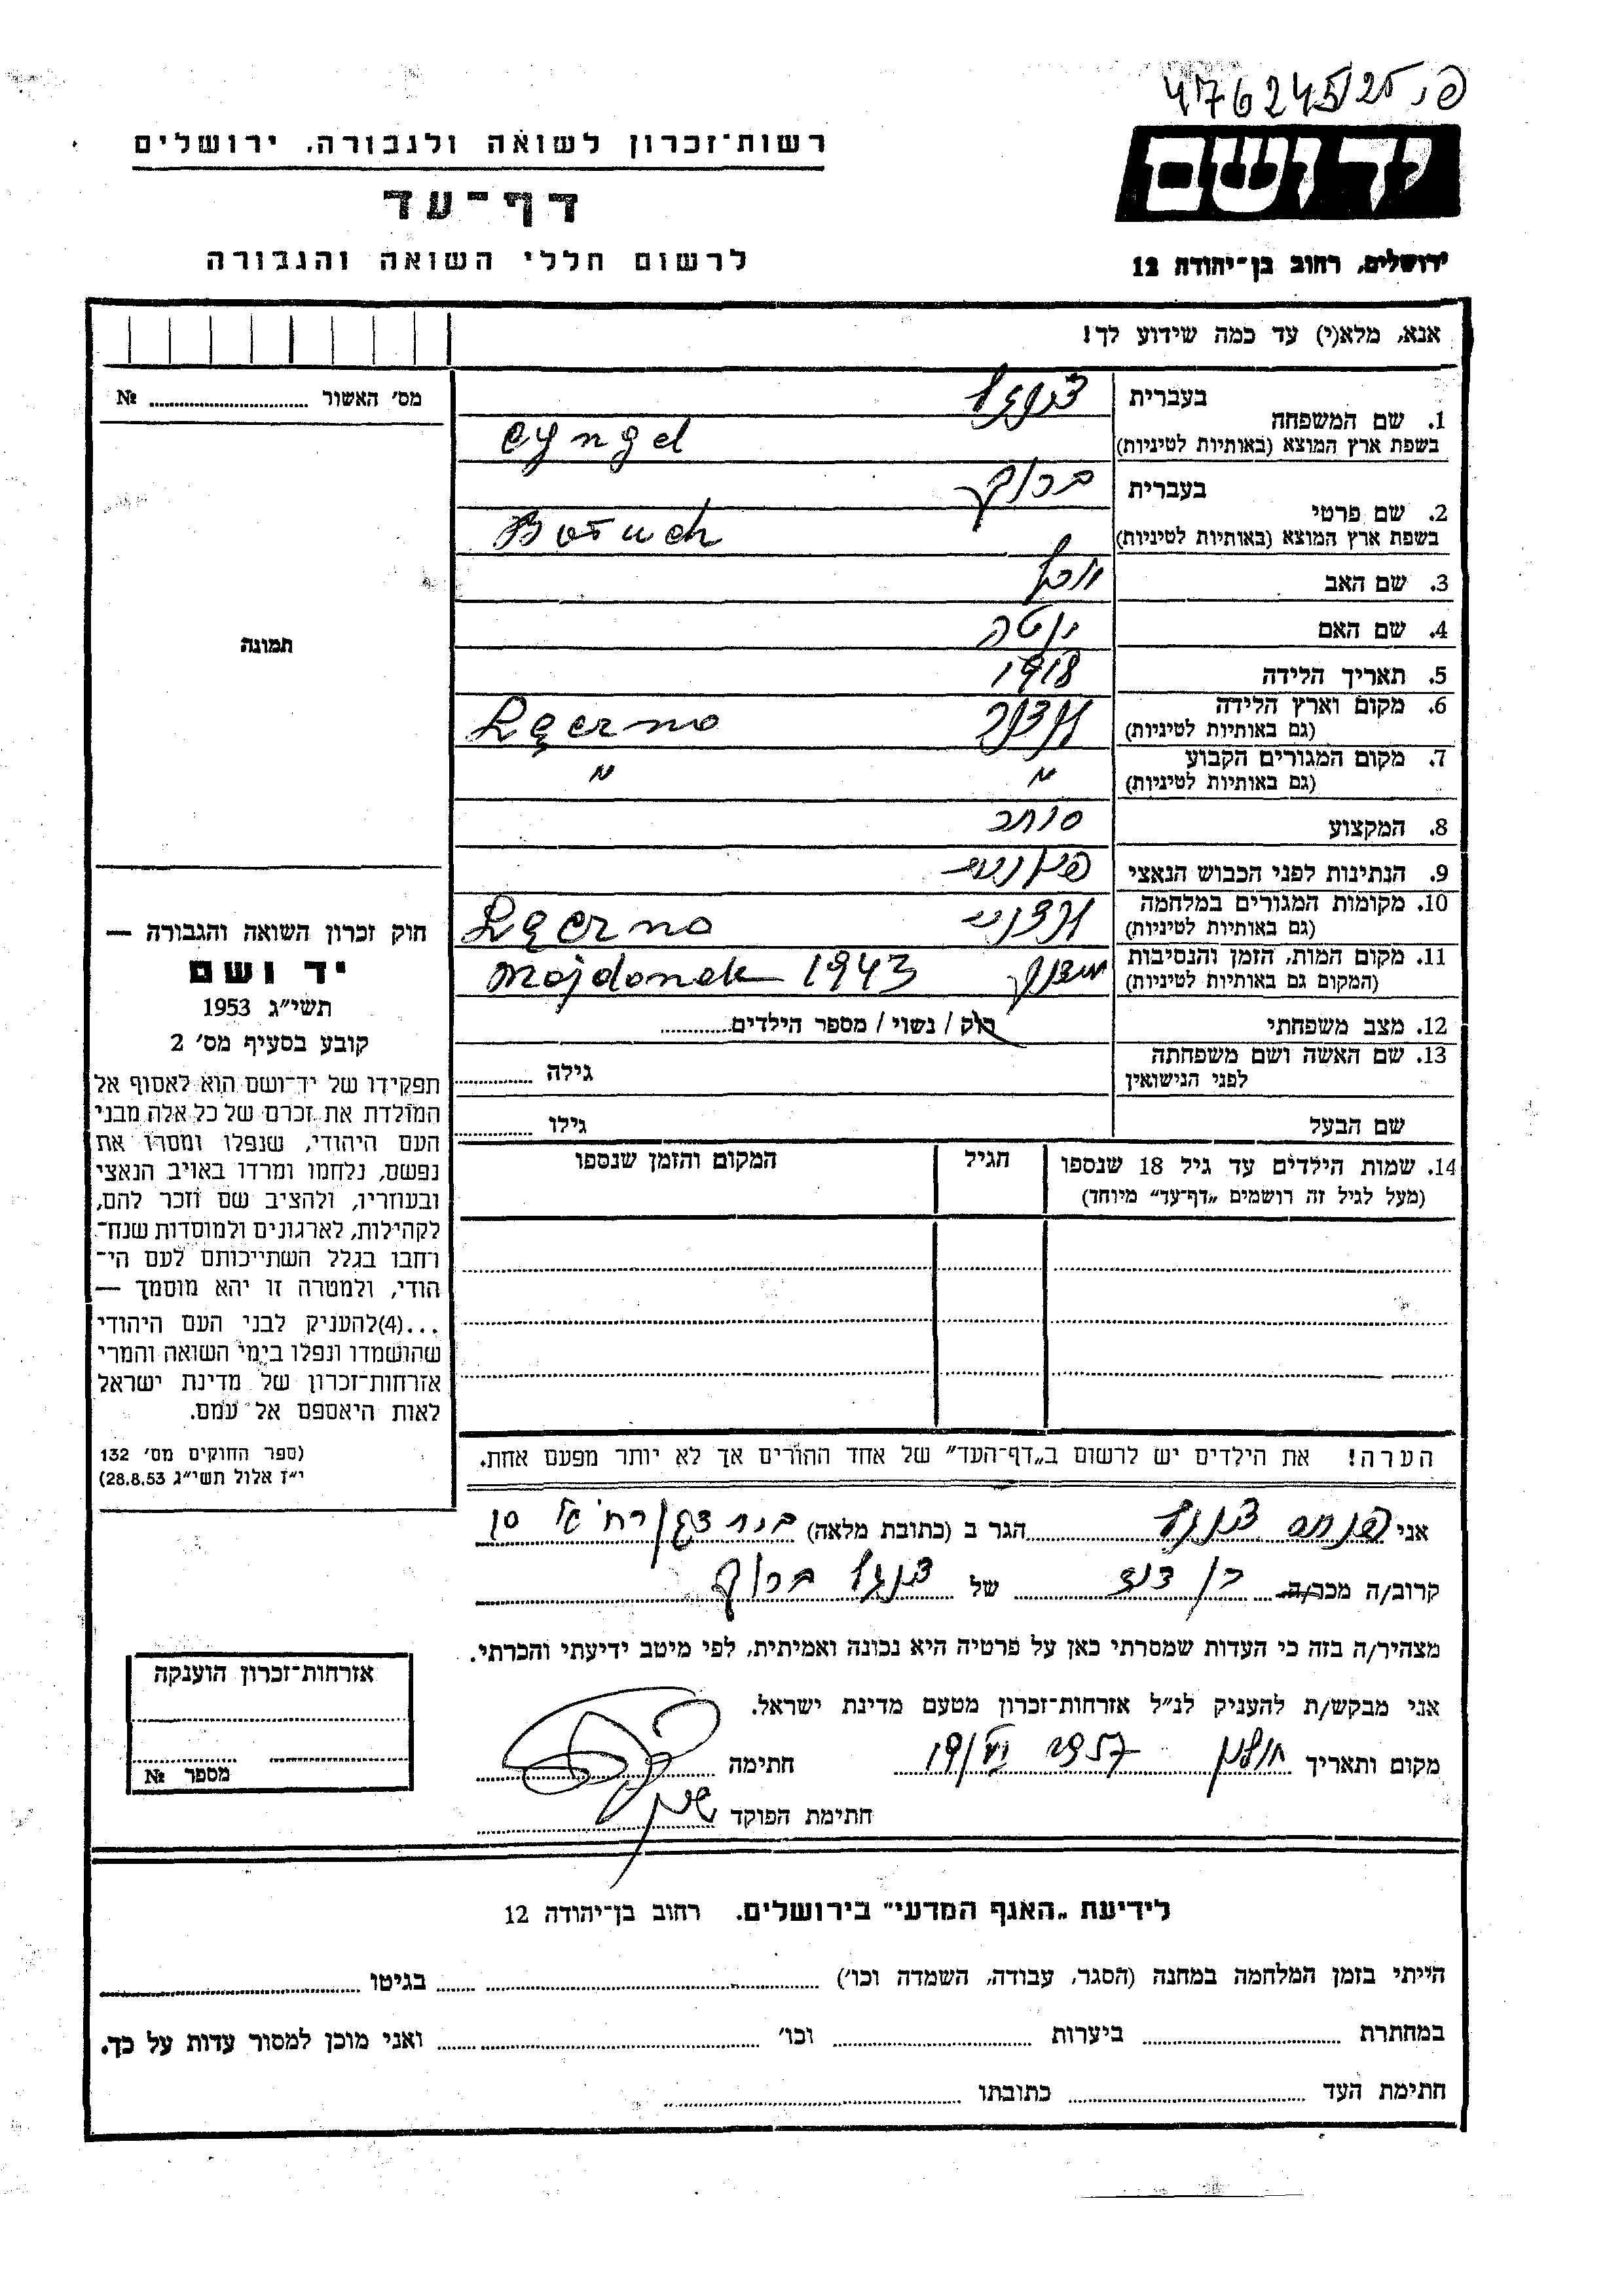 פ. 476245/25
יד ושם
רשות־זכרון לשואה ולגבורה. ירושלים
דף־עד
לרשום חללי השואה והגבורה
ירושלים, רחוב בן־יהודה 12
אנא, מלא(י) עד כמה שידוע לך!
מס׳ האשור № 
1. שם המשפחה
בעברית צינגל
בשפת ארץ המוצא (באותיות לטיניות) Cyngel
2. שם פרטי
בעברית ברוך
בשפת ארץ המוצא (באותיות לטיניות) Boruch
3. שם האב
4. שם האם יוטה
5. תאריך הלידה 1918
6. מקום וארץ הלידה
(גם באותיות לטיניות) Lęczno
7. מקום המגורים הקבוע
(גם באותיות לטיניות) " "
8. המקצוע סוחר
9. הנתינות לפני הכבוש הנאצי פולנית
10. מקומות המגורים במלחמה
(גם באותיות לטיניות) Lęczno
11. מקום המות, הזמן והנסיבות
(המקום גם באותיות לטיניות) Majdanek 1943
12. מצב משפחתי רוק / נשוי / מספר הילדים
13. שם האשה ושם משפחתה
לפני הנישואין גילה
שם הבעל גילו
14. שמות הילדים עד גיל 18 שנספו
(מעל לגיל זה רושמים „דף־עד” מיוחד)
הגיל
המקום והזמן שנספו
תמונה
חוק זכרון השואה והגבורה —
יד ושם
תשי״ג 1953
קובע בסעיף מס׳ 2
תפקידו של יד־ושם הוא לאסוף אל
המולדת את זכרם של כל אלה מבני
העם היהודי, שנפלו ומסרו את
נפשם, נלחמו ומרדו באויב הנאצי
ובעוזריו, ולהציב שם וזכר להם,
לקהילות, לארגונים ולמוסדות שנח־
רחבו בגלל השתייכותם לעם הי־
הודי, ולמטרה זו יהא מוסמך —
...(4)להעניק לבני העם היהודי
שהושמדו ונפלו בימי השואה והמרי
אזרחות־זכרון של מדינת ישראל
לאות היאספם אל עמם.
(ספר החוקים מס׳ 132
י״ז אלול תשי״ג 28.8.53)
הערה! את הילדים יש לרשום ב„דף־העד” של אחד ההורים אך לא יותר מפעם אחת.
אני פנחס צינגל הגר ב (כתובת מלאה)
קרוב/ה מכר/ה בן דוד של צינגל ברוך
מצהיר/ה בזה כי העדות שמסרתי כאן על פרטיה היא נכונה ואמיתית, לפי מיטב ידיעתי והכרתי.
אני מבקש/ת להעניק לנ״ל אזרחות־זכרון מטעם מדינת ישראל.
מקום ותאריך חתימה
חתימת הפוקד
אזרחות־זכרון הוענקה
מספר №
לידיעת „האגף המדעי” בירושלים. רחוב בן־יהודה 12
הייתי בזמן המלחמה במחנה (הסגר, עבודה, השמדה וכו׳) בגיטו
במחתרת ביערות וכו׳ ואני מוכן למסור עדות על כך.
חתימת העד כתובתו